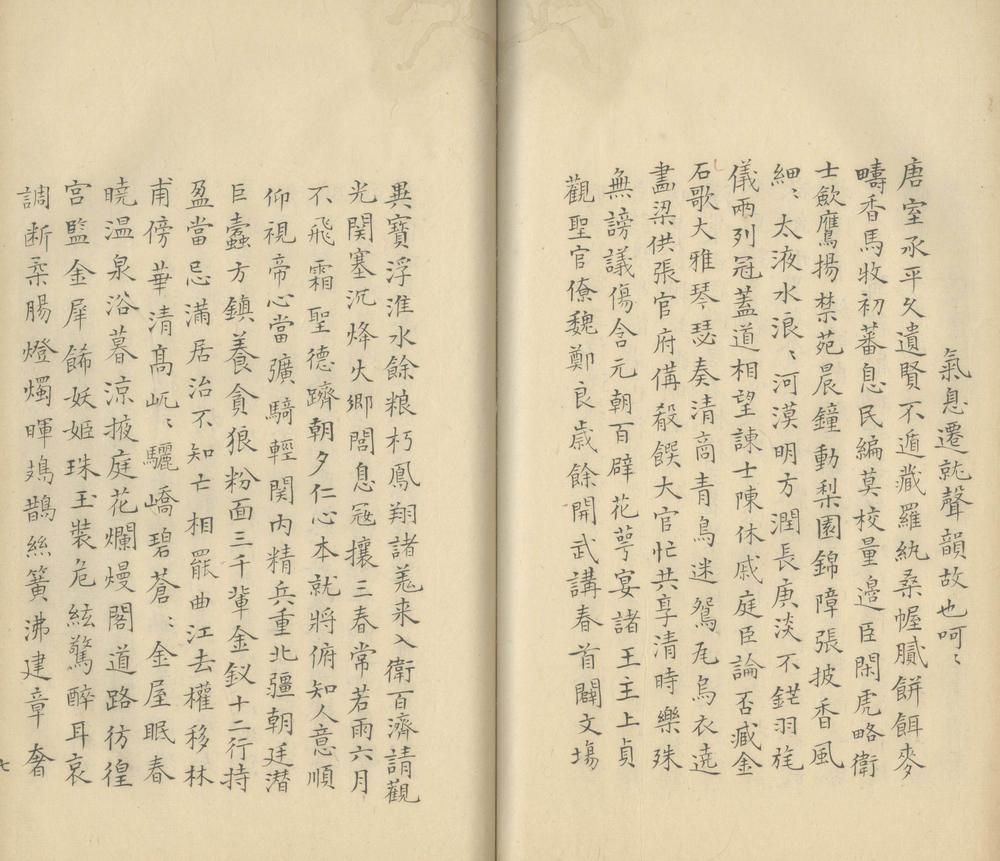 氣息遷就聲韻故也呵〻
唐室承平久遺賢不遁藏羅紈桑幄膩餅餌麥
疇香馬牧初蕃息民編莫校量邊臣閑虎略衛
士歘鷹揚禁苑晨鐘動梨園錦障張披香風
細〻太液水浪〻河漠明方潤長庚淡不鋩羽旄
儀兩列冠蓋道相望諫士陳休戚庭臣論否臧金
石歌大雅琴瑟奏清商青鳥迷鴛瓦烏衣遶
畫梁供張官府偹殽饌大官忙共享清時樂殊
無謗議傷含元朝百辟花萼宴諸王主上貞
觀聖官僚魏鄭良歲餘開武講春首闢文場
異寶浮淮水餘粮朽鳳翔諸羌来入衛百濟請觀
光関塞沉烽火鄉閭息寇攘三春常若雨六月
不飛霜聖德躋朝夕仁心本就將俯知人意順
仰視帝心當彍騎輕関内精兵重北疆朝廷潛
巨蠹方鎮養貪狼粉面三千輩金釵十二行持
盈當忌滿居治不知亡相罷曲江去權移林
甫傍華清髙屼〻驪嶠碧蒼〻金屋眠春
曉温泉浴暮涼掖庭花爛熳閣道路彷徨
宮監金犀餙妖姬珠玉裝危絃驚醉耳哀
調断柔腸燈燭暉鳷鵲絲簧沸建章奢
七